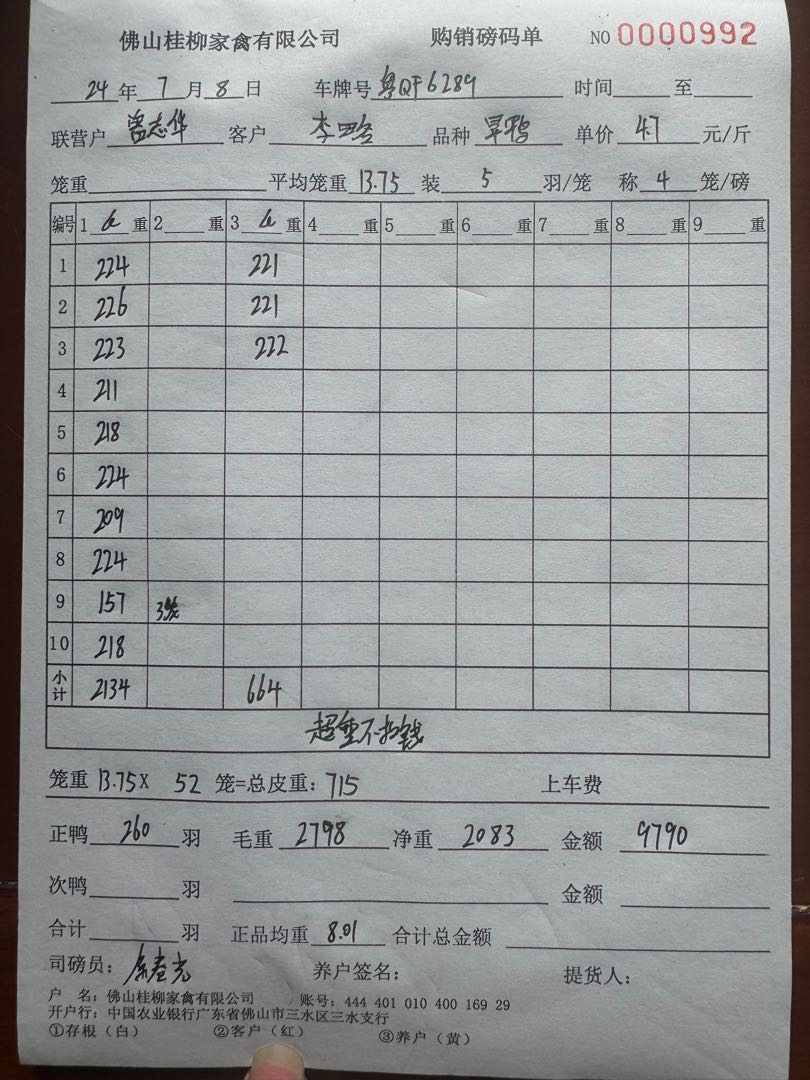 佛山桂柳家禽有限公司 购销磅码单 NO 0000992
24 年 7 月 8 日 车牌号 粤QF6289 时间 至
联营户 曾志华 客户 李 品种 旱鸭 单价 4.7 元/斤
笼重 平均笼重 13.75 装 5 羽/笼 称 4 笼/磅
编号 1 毛 重 2 重 3 毛 重 4 重 5 重 6 重 7 重 8 重 9 重
1 224 221
2 226 221
3 223 222
4 211
5 218
6 224
7 209
8 224
9 157 3笼
10 218
小计 2134 664
超重不扣钱
笼重 13.75X 52 笼=总皮重: 715 上车费
正鸭 260 羽 毛重 2798 净重 2083 金额 9790
次鸭 羽 金额
合计 羽 正品均重 8.01 合计总金额
司磅员: 养户签名: 提货人:
户 名: 佛山桂柳家禽有限公司 账号: 444 401 010 400 169 29
开户行: 中国农业银行广东省佛山市三水区三水支行
①存根(白) ②客户(红) ③养户(黄)